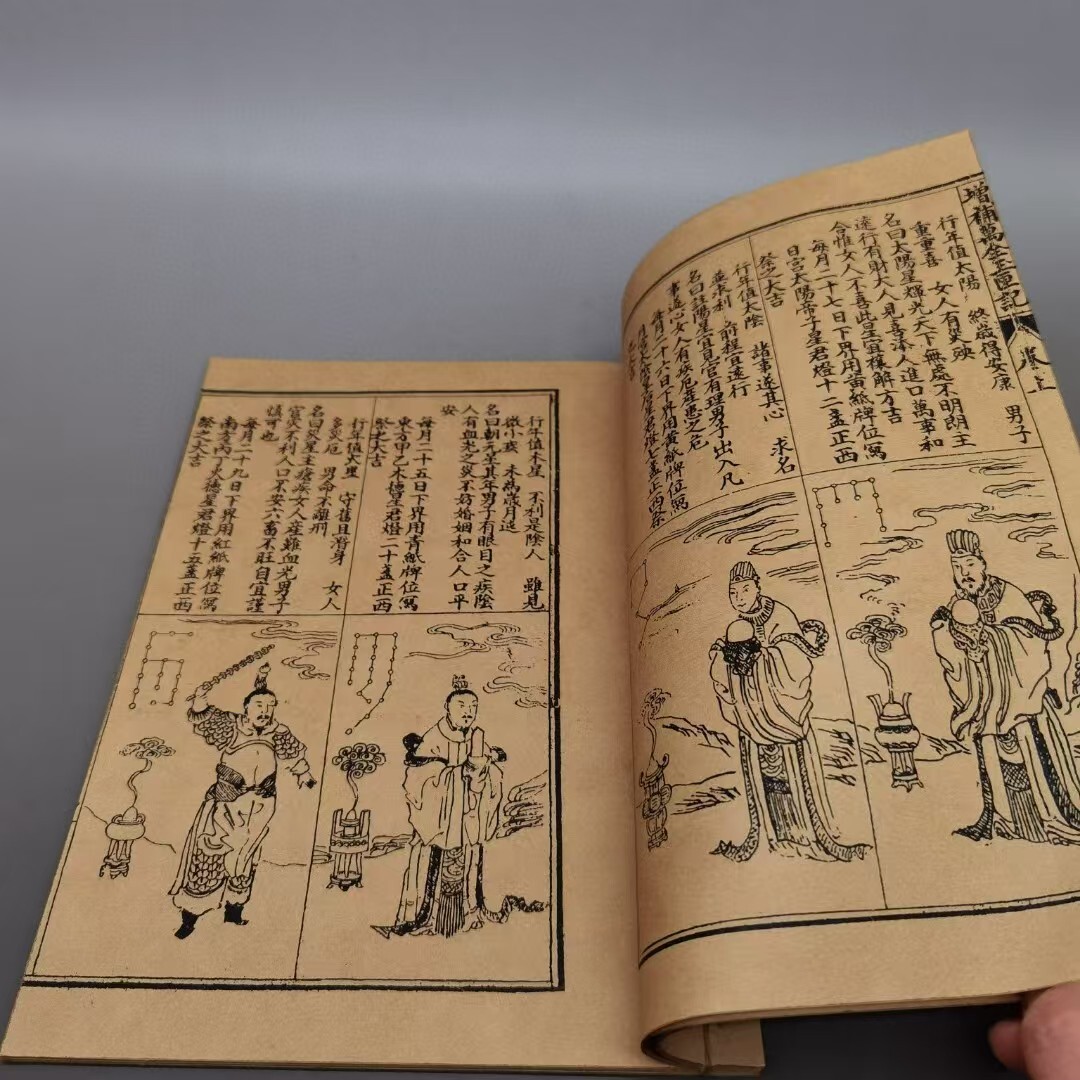 增補萬全玉匣記
卷上
行年值太陽 終歲得安康 男子
重重喜 女人有災殃
名曰太陽星輝光天下無處不明朗主
遠行有財大人見喜添人進口萬事和
合惟女人不喜此星宜禳解方吉
每月二十七日下界用黃紙牌位寫
日宮太陽帝子星君燈十二盞正西
祭之大吉
行年值太陰 諸事遂其心 求名
並求利 前程宜遠行
事遂心女人有疾厄
每月二十六日下界用黃紙牌位寫
行年值木星 不利是陰人 雖見
微小疾 未為歲月迍
名曰朝元星其年男子有眼目之疾陰
人有血光之災不妨婚姻和合人口平
安
每月二十五日下界用青紙牌位寫
東方甲乙木德星君燈二十盞正西
祭之大吉
行年值火星 守舊且潛身 女人
多災厄 男命不離刑
名曰災星主瘡疾女人產難血光男子
官災不利人口不安六畜不旺自宜謹
慎可也
每月二十九日下界用紅紙牌位寫
南方丙丁火德星君燈十五盞正西
祭之大吉